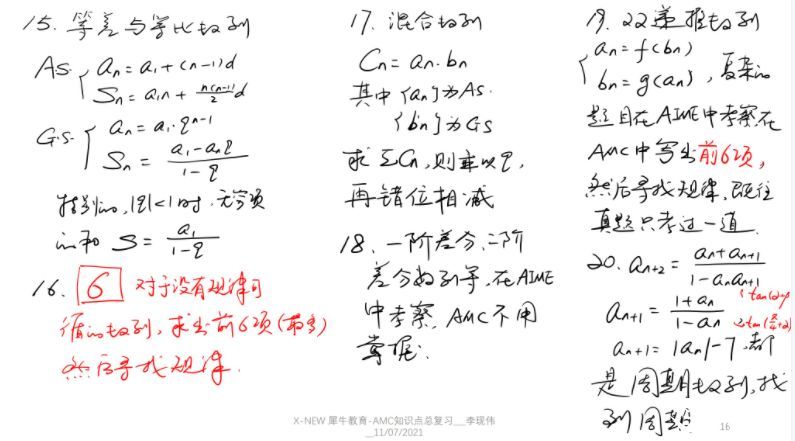 15. 等差与等比数列
A.S. { an = a1 + (n-1)d
Sn = a1n + n(n-1)/2 d
G.S. { an = a1·q^(n-1)
Sn = (a1 - anq)/(1 - q)
特别的, |q|<1时, 无穷项
的和 S = a1/(1 - q)
16. 6 对于没有规律可
循的数列, 求出前6项(最多)
然后寻找规律.
17. 混合数列
Cn = an·bn
其中 {an}为AS.
{bn}为GS
求ΣCn, 则乘以q,
再错位相减
18. 一阶差分, 二阶
差分数列等, 在AIME
中考察, AMC不用
掌握.
19. 双递推数列
{ an = f(bn)
bn = g(an), 复杂的
题目在AIME中考察, 在
AMC中写出前6项,
然后寻找规律, 既往
真题只考过一道.
20. an+2 = (an + an+1)/(1 - an an+1)
an+1 = (1 + an)/(1 - an)
an+1 = |an| - 7, 都
是周期数列, 找
到周期
X-NEW 犀牛教育-AMC知识点总复习__李现伟
__11/07/2021
16